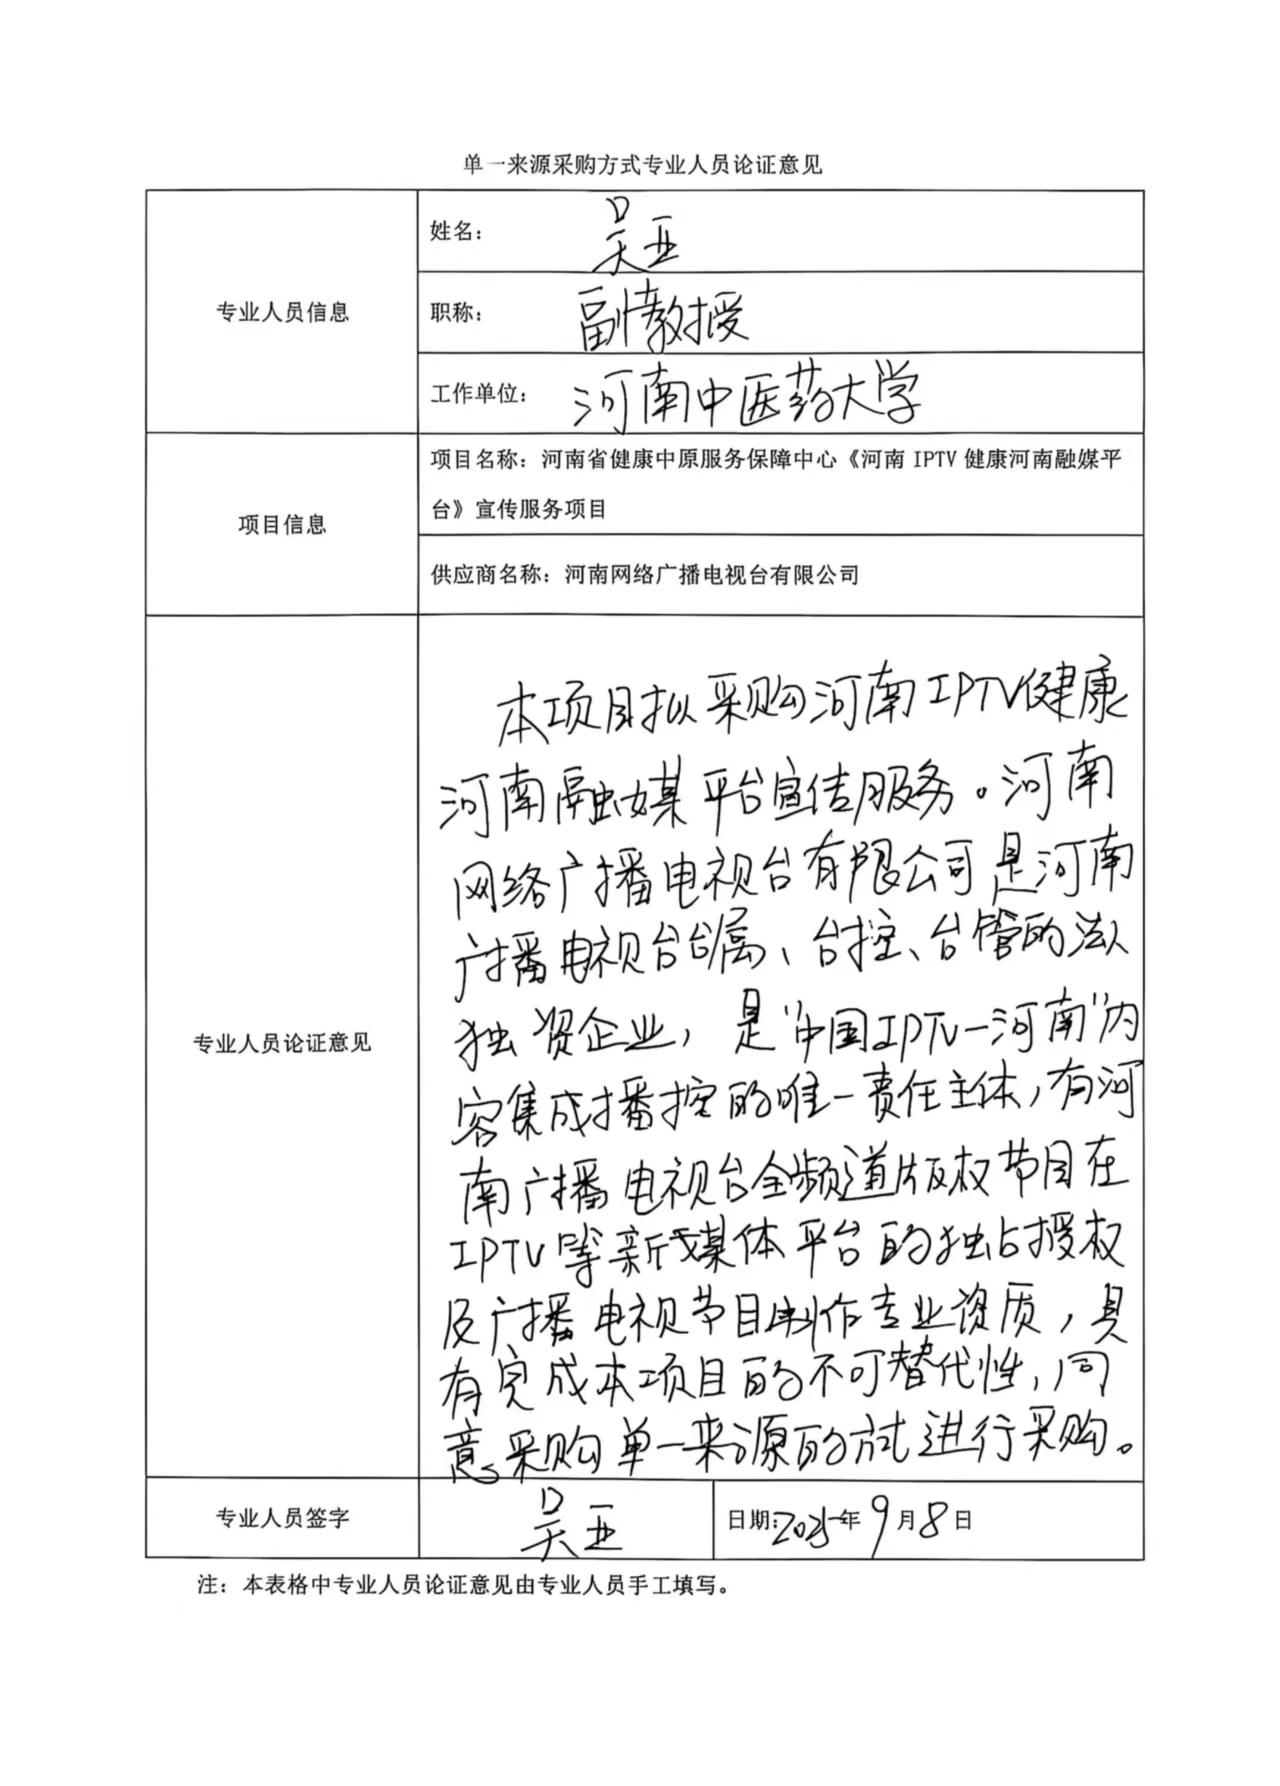 单一来源采购方式专业人员论证意见
专业人员信息
姓名：吴亚
职称：副教授
工作单位：河南中医药大学
项目信息
项目名称：河南省健康中原服务保障中心《河南 IPTV 健康河南融媒平
台》宣传服务项目
供应商名称：河南网络广播电视台有限公司
专业人员论证意见
本项目拟采购河南IPTV健康
河南融媒平台宣传服务。河南
网络广播电视台有限公司是河南
广播电视台台属、台控、台管的法人
独资企业，是“中国IPTV—河南”内
容集成播控的唯一责任主体，有河
南广播电视台全频道版权节目在
IPTV等新媒体平台的独占授权
及广播电视节目制作专业资质，具
有完成本项目的不可替代性，同
意采购单一来源的方式进行采购。
专业人员签字
吴亚
日期：2025年9月8日
注：本表格中专业人员论证意见由专业人员手工填写。